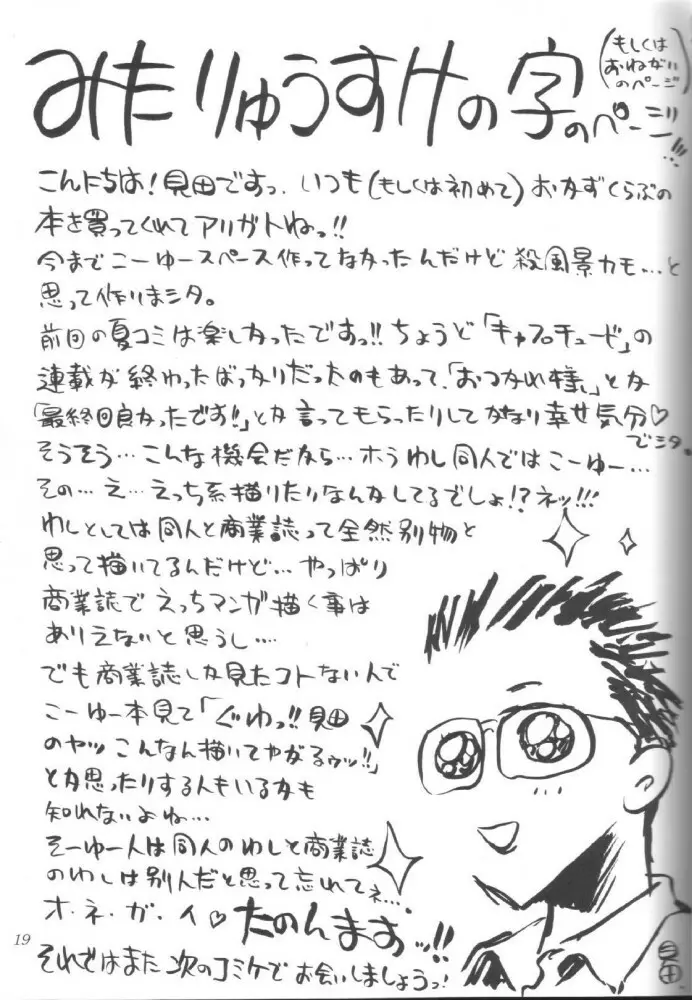 みたりゅうすけの字のページ!!!
(もしくは
おねがい
のページ)
こんにちは!見田ですっ.いつも(もしくは初めて)おかずくらぶの
本を買ってくれてアリガトねっ!!
今までこーゆースペース作ってなかったんだけど殺風景カモ…と
思って作りまシタ。
前回の夏コミは楽しかったですっ!!ちょうど「キャプロチュード」の
連載が終わったばっかりだったのもあって、「おつかれ様」とか
「最終回良かったです!」とか言ってもらったりしてかなり幸せ気分♡
でシタ。
そうそう…こんな機会だから…ホラわし同人ではこーゆー…
その…え…えっち系描いたりなんかしてるでしょ!?ネッ!!!
わしとしては同人と商業誌って全然別物と
思って描いてるんだけど…やっぱり
商業誌でえっちマンガ描く事は
ありえないと思うし….
でも商業誌しか見たコトない人で
こーゆー本見て「ぐわっ!!見田
のヤツこんなん描いてやがるゥッ!!」
とか思ったりする人もいるかも
知れないよね…
そーゆー人は同人のわしと商業誌
のわしは別人だと思って忘れてネ…
オ・ネ・ガ・イ♡たのんますっ…!!
それではまた次のコミケでお会いしましょうっ!
見田
19